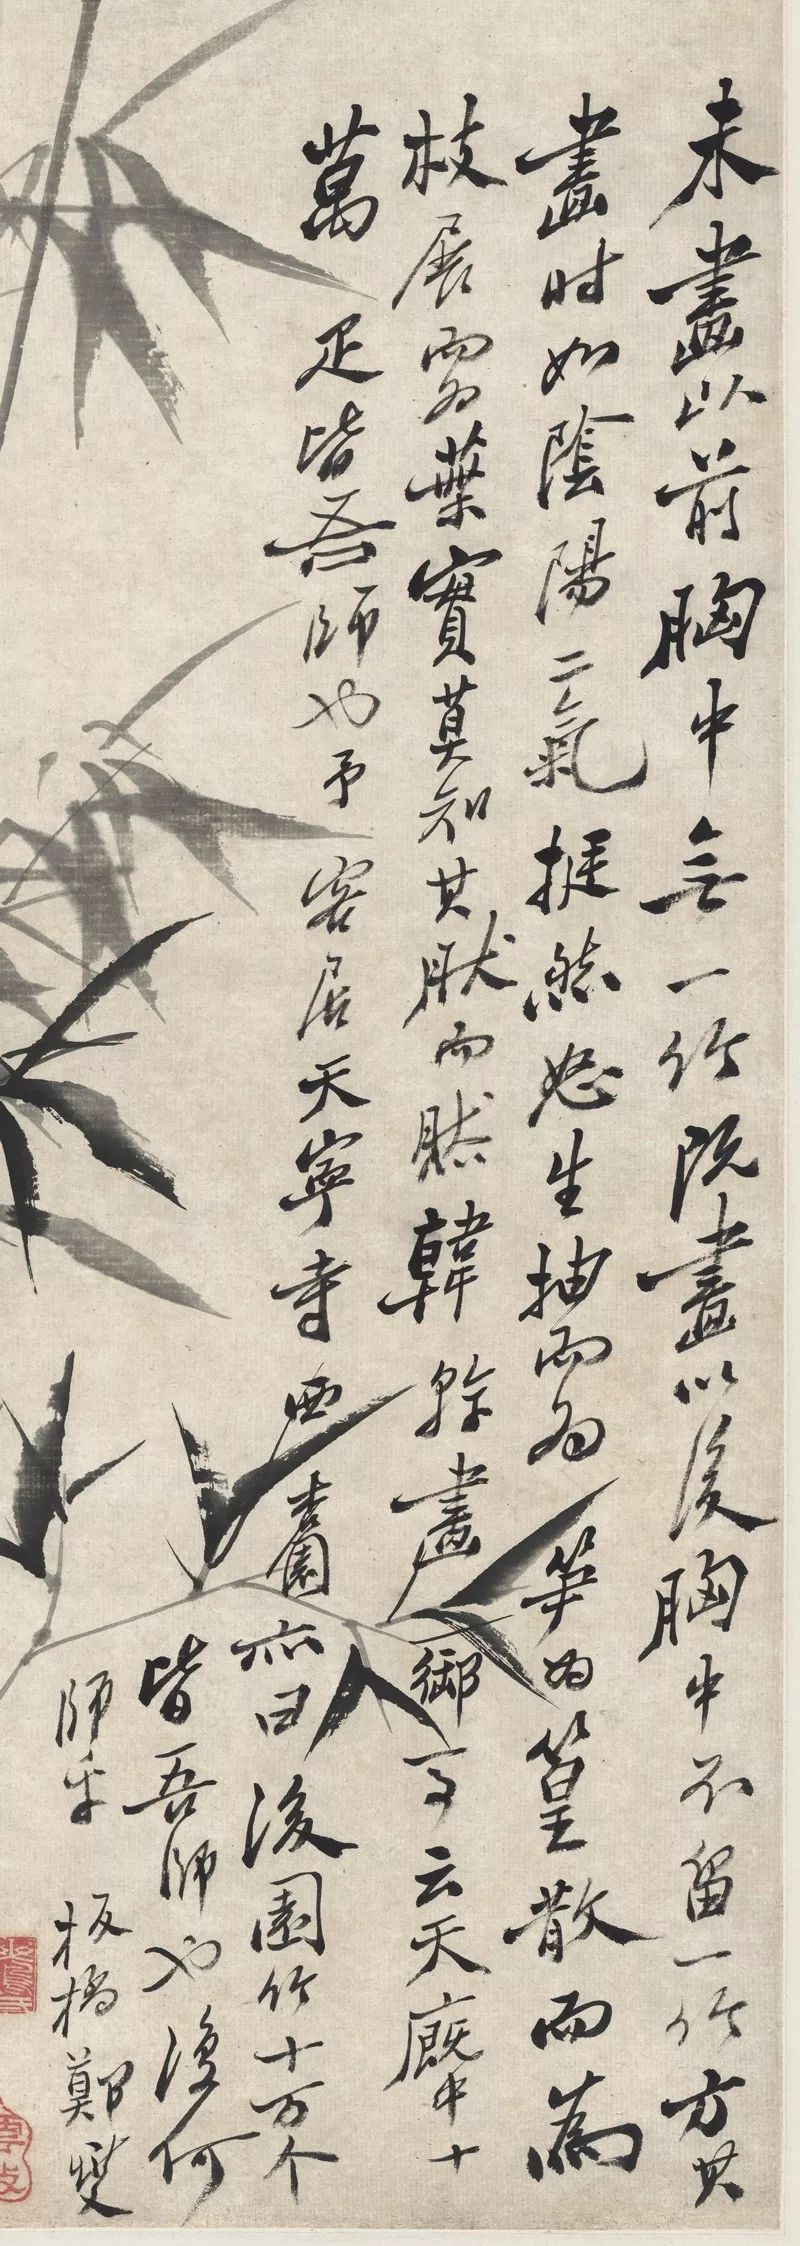 未畫以前胸中無一竹既畫以後胸中不留一竹方其
畫時如陰陽二氣挺然怒生抽而为笋为篁散而為
枝展而为葉實莫知其然而然韓幹畫御馬云天廐中十
萬疋皆吾師也予客居天寧寺西杏園亦曰後園竹十万个
皆吾師也復何
師乎 板橋鄭燮